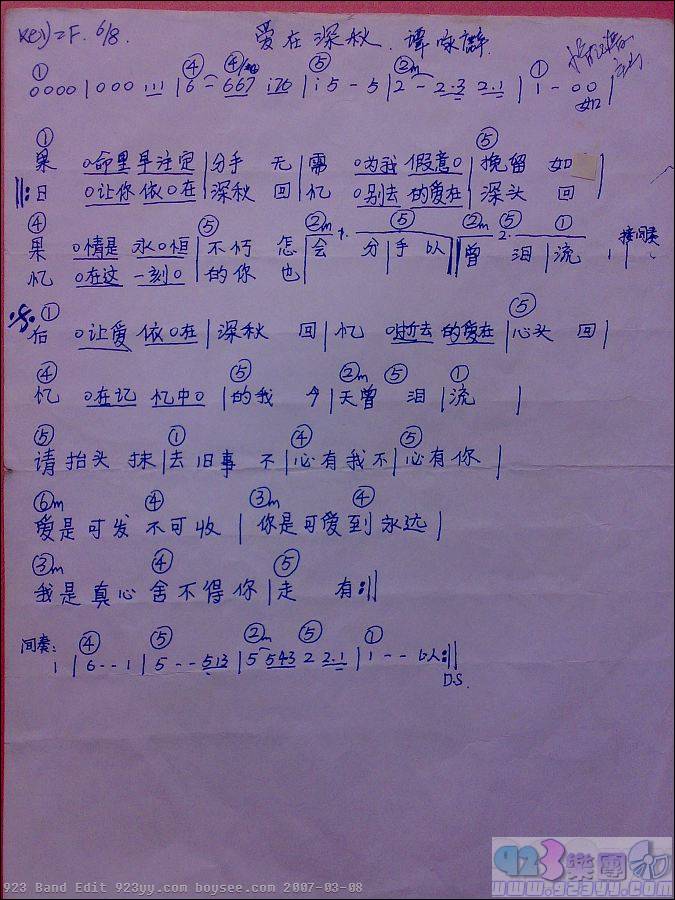 Key=F. 6/8. 爱在深秋. 谭咏麟
① ④ ④/ ⑤ ②m ①
0000 | 000 111 | 6 - 667 i76 | i5 - 5 | 2 - 2·3 2·1 | 1 - 00 |
如
① ⑤
果 0命里早注定 | 分手 无 | 需 0为我 假意0 | 挽留 如 |
日 0让你 依0在 | 深秋 回 | 忆 0别去 的爱在 | 深头 回
④ ⑤ ②m 1. ⑤ ②m 2. ⑤ ①
果 0情是 永0恒 | 不朽 怎 | 会 分 | 手 以 | 曾 泪 | 流 , | 接间奏
忆 0在这 一刻0 | 的你 也
① ⑤
后 0让爱 依0在 | 深秋 回 | 忆 0逝去 的爱在 | 心头 回 |
④ ⑤ ②m ⑤ ①
忆 0在记 忆中0 | 的我 今 | 天曾 泪 | 流 |
⑤ ① ④ ⑤
请抬头 抹 | 去旧事 不 | 心有我不 | 心有你 |
⑥m ④ ③m ④
爱是可发不可收 | 你是可爱到永远 |
③m ④ ⑤
我是真心舍不得你 | 走 有 :||
间奏: ④ ⑤ ②m ⑤ ①
1 | 6 - - 1 | 5 - - 513 | 5 543 2 2·1 | 1 - - 以 :||
D.S.
923 Band Edit 923yy.com boysee.com 2007-03-08
923樂團
www.923yy.com